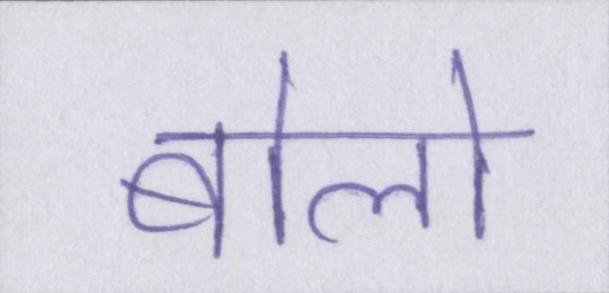 बोलो